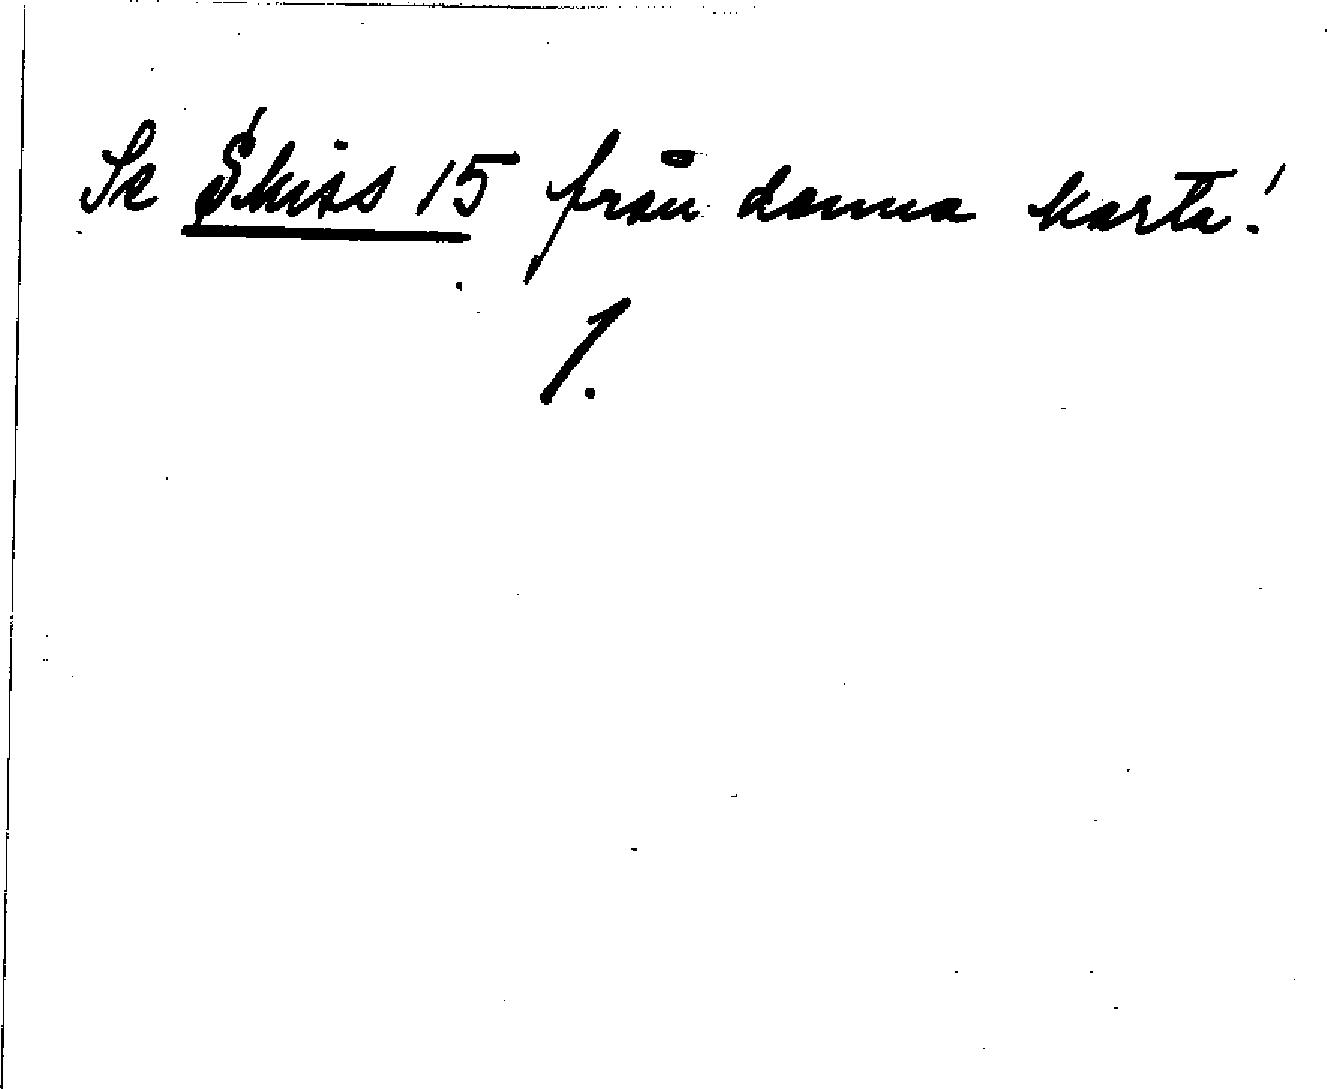 Se Skiss 15 från denna karta!
1.